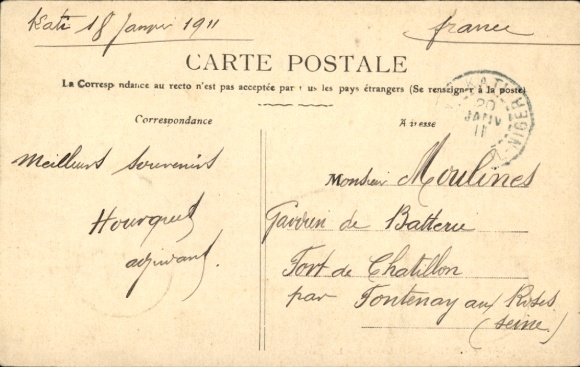 Kati 18 Janvier 1911
france
CARTE POSTALE
La Correspondance au recto n'est pas acceptée par tous les pays étrangers (Se renseigner à la poste)
KATI
20
JANV
11
NIGER
Correspondance
Adresse
Meilleurs souvenirs
adjudant
Monsieur Moulines
Gardien de Batterie
Fort de Chatillon
par Fontenay aux Roses
(Seine)